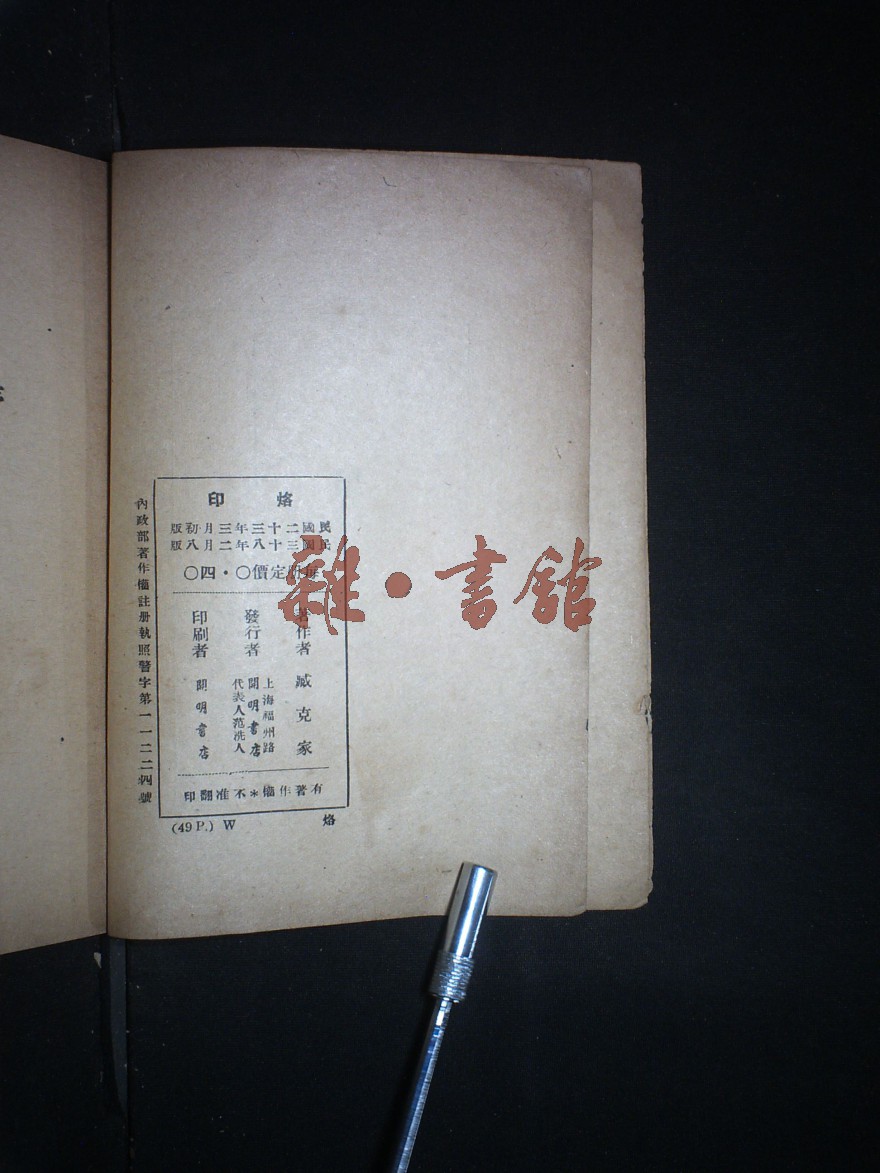 烙印
民國二十三年三月初版
民國三十八年二月八版
每册定價〇·四〇
著作者 臧克家
發行者 上海福州路
開明書店
代表人范洗人
印刷者 開明書店
有著作權*不准翻印
內政部著作權註册執照警字第一一二二四號
(49 P.) W 烙
雜·書館